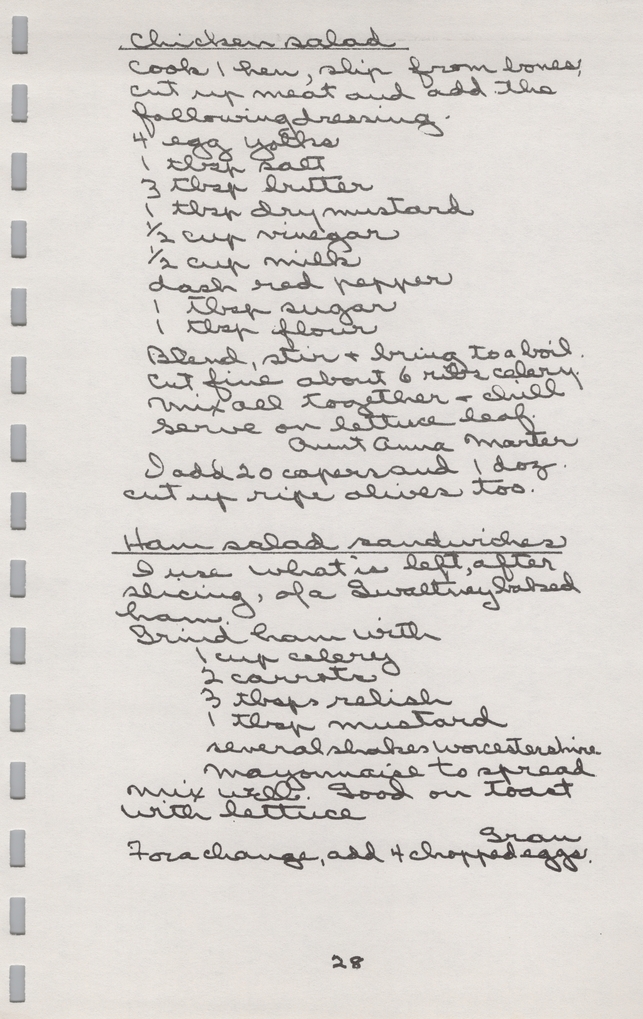 Chicken salad
Cook 1 hen, slip from bones,
cut up meat and add the
following dressing.
4 egg yolks
1 tbsp salt
3 tbsp butter
1 tbsp dry mustard
1/2 cup vinegar
1/2 cup milk
dash red pepper
1 tbsp sugar
1 tbsp flour
Blend, stir + bring to a boil.
Cut fine about 6 ribs celery.
Mix all together + chill
Serve on lettuce leaf.
Aunt Anna Marter
I add 20 capers and 1 doz.
cut up ripe olives too.
Ham salad sandwiches
I use what is left, after
slicing, of a Gwaltney baked
ham.
Grind ham with
1 cup celery
2 carrots
3 tbsps relish
1 tbsp mustard
several shakes Worcestershire
mayonnaise to spread
Mix well. Good on toast
with lettuce
Gran
For a change, add 4 chopped eggs.
28